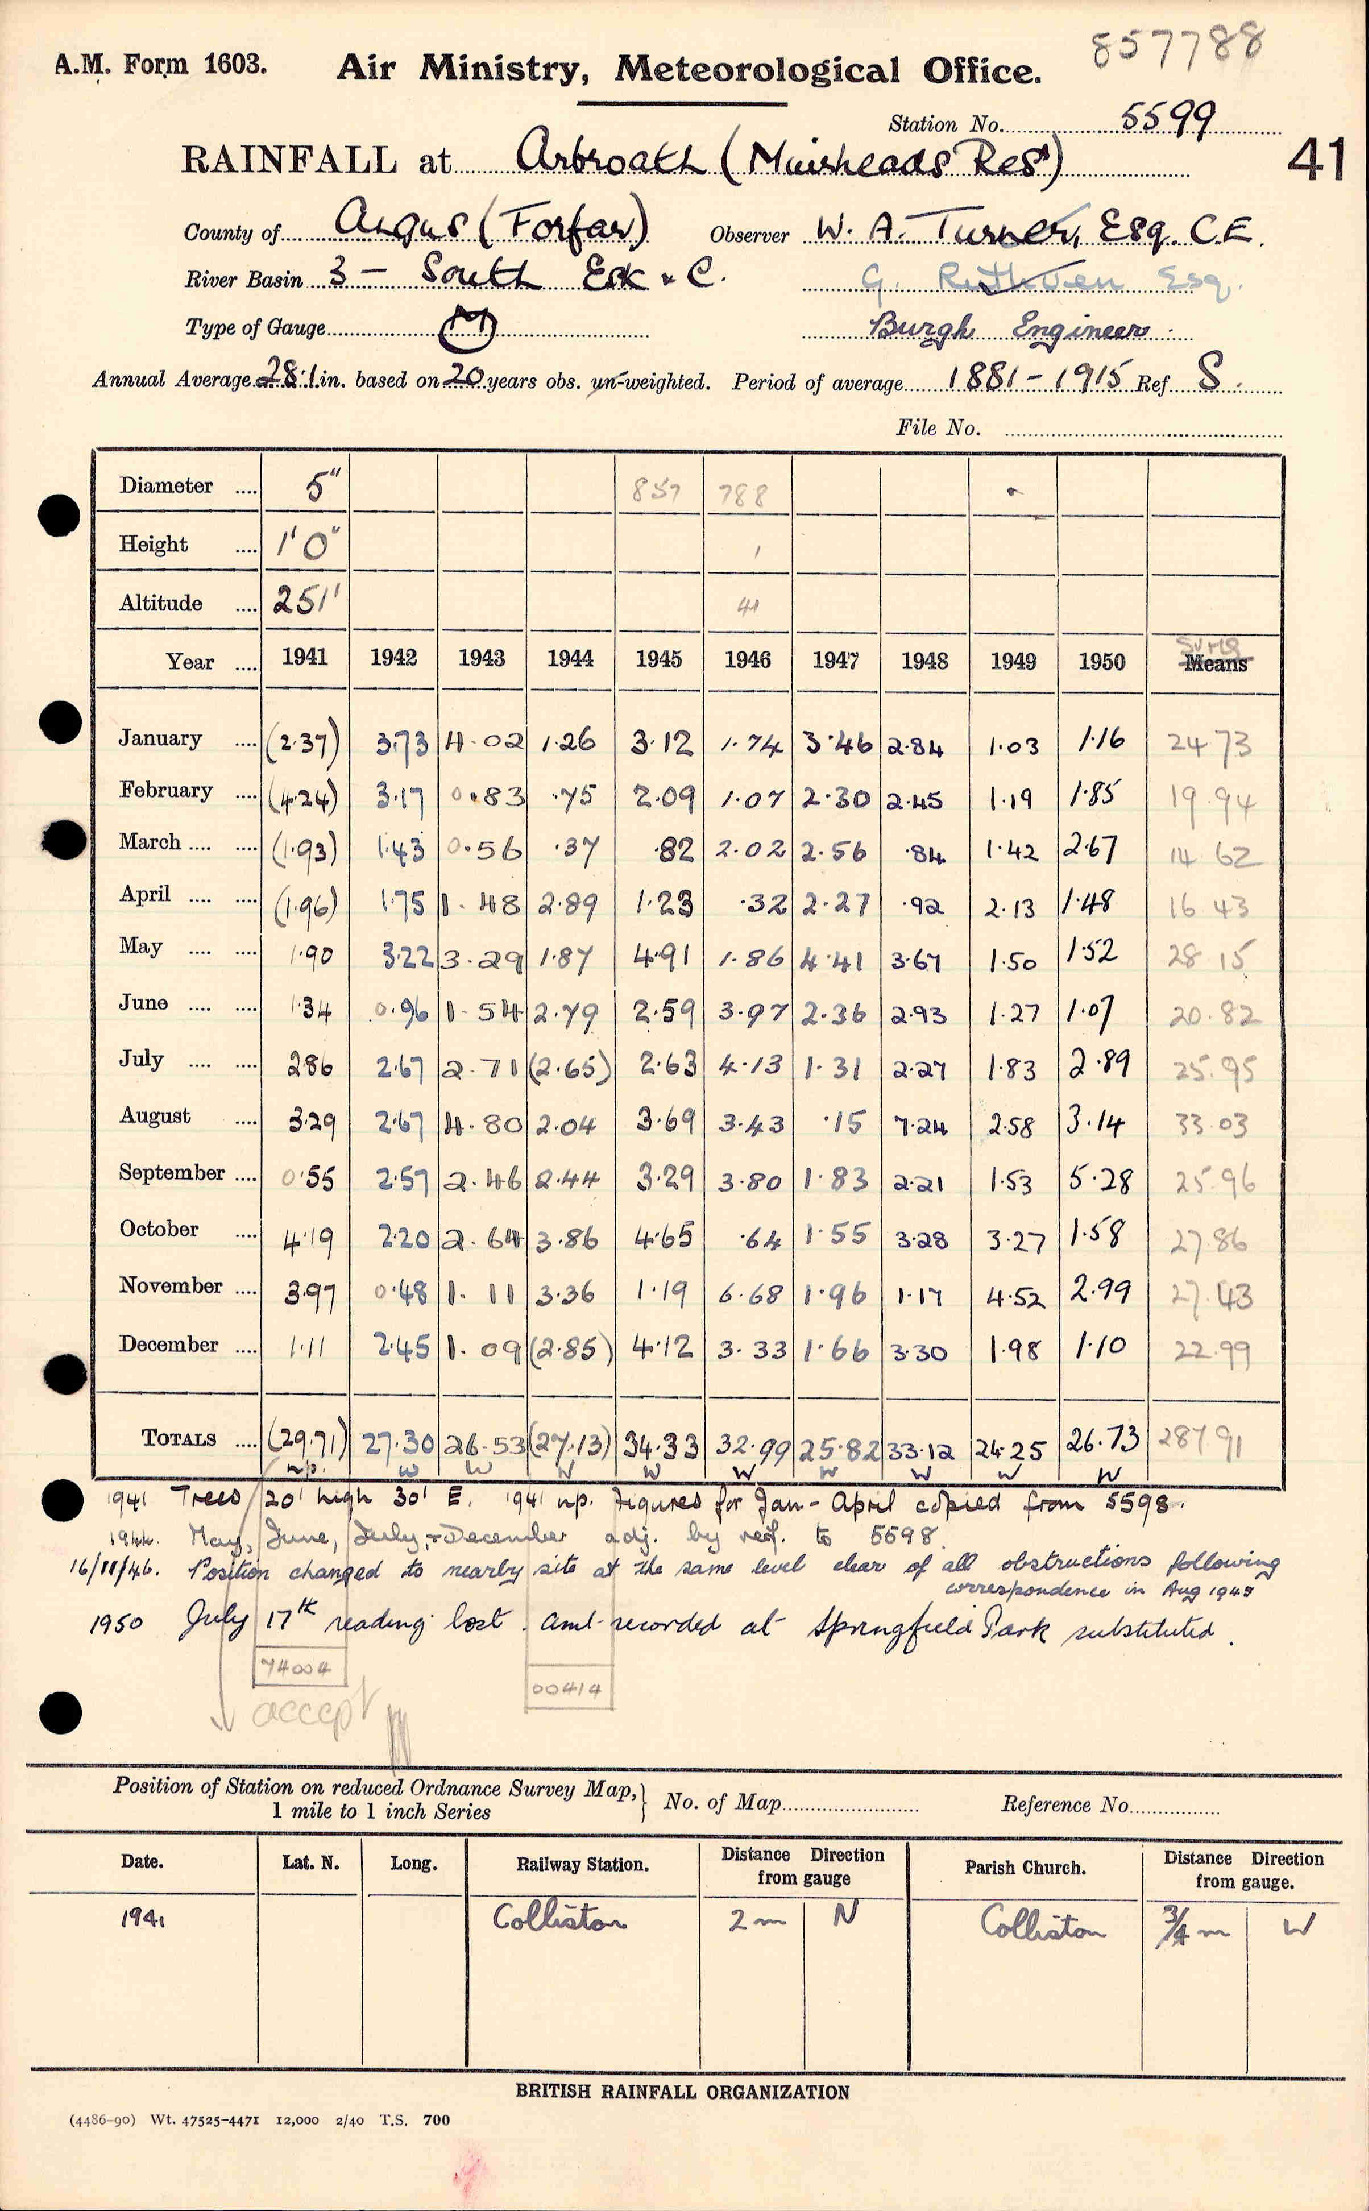 857788
A.M. Form 1603. Air Ministry, Meteorological Office.
Station No. 5599
RAINFALL at Arbroath (Muirheads Resr) 41
County of Angus (Forfar) Observer W. A. Turner, Esq. C.E.
River Basin 3 — South Esk & C. G. Ruthven Esq.
Type of Gauge M Burgh Engineer
Annual Average 28.1 in. based on 20 years obs. un-weighted. Period of average 1881-1915 Ref S.
File No.
Diameter .... 5" 857 788
Height .... 1' 0" 1
Altitude .... 251' 41
Sums
Year .... 1941 1942 1943 1944 1945 1946 1947 1948 1949 1950 Means
January .... (2.37) 3.73 4.02 1.26 3.12 1.74 3.46 2.84 1.03 1.16 24 73
February .... (4.24) 3.17 0.83 .75 2.09 1.07 2.30 2.45 1.19 1.85 19.94
March .... .... (1.93) 1.43 0.56 .37 .82 2.02 2.56 .84 1.42 2.67 14 62
April .... .... (1.96) 1.75 1.48 2.89 1.23 .32 2.27 .92 2.13 1.48 16 43
May .... .... 1.90 3.22 3.29 1.87 4.91 1.86 4.41 3.67 1.50 1.52 28 15
June .... .... 1.34 0.96 1.54 2.79 2.59 3.97 2.36 2.93 1.27 1.07 20.82
July .... .... 2.86 2.67 2.71 (2.65) 2.63 4.13 1.31 2.27 1.83 2.89 25.95
August .... 3.29 2.67 4.80 2.04 3.69 3.43 .15 7.24 2.58 3.14 33.03
September .... 0.55 2.57 2.46 2.44 3.29 3.80 1.83 2.21 1.53 5.28 25.96
October .... 4.19 2.20 2.64 3.86 4.65 .64 1.55 3.28 3.27 1.58 27.86
November .... 3.97 0.48 1.11 3.36 1.19 6.68 1.96 1.17 4.52 2.99 27.43
December .... 1.11 2.45 1.09 (2.85) 4.12 3.33 1.66 3.30 1.98 1.10 22.99
TOTALS .... (29.71) 27.30 26.53 (27.13) 34.33 32.99 25.82 33.12 24.25 26.73 287.91
np. W W W W W W W W W
1941 Trees 20' high 30' E. 1941 np. figures for Jan - April copied from 5598.
1944. May, June, July, & December adj. by ref. to 5598.
16/11/46. Position changed to nearby site at the same level clear of all obstructions following
correspondence in Aug 1945
1950 July 17th reading lost. Amt recorded at Springfield Park substituted.
74004
00414
accept
Position of Station on reduced Ordnance Survey Map,
1 mile to 1 inch Series } No. of Map Reference No.
Date. Lat. N. Long. Railway Station. Distance Direction from gauge Parish Church. Distance Direction from gauge.
1941 Colliston 2 m N Colliston 3/4 m W
BRITISH RAINFALL ORGANIZATION
(4486-90) Wt. 47525-4471 12,000 2/40 T.S. 700